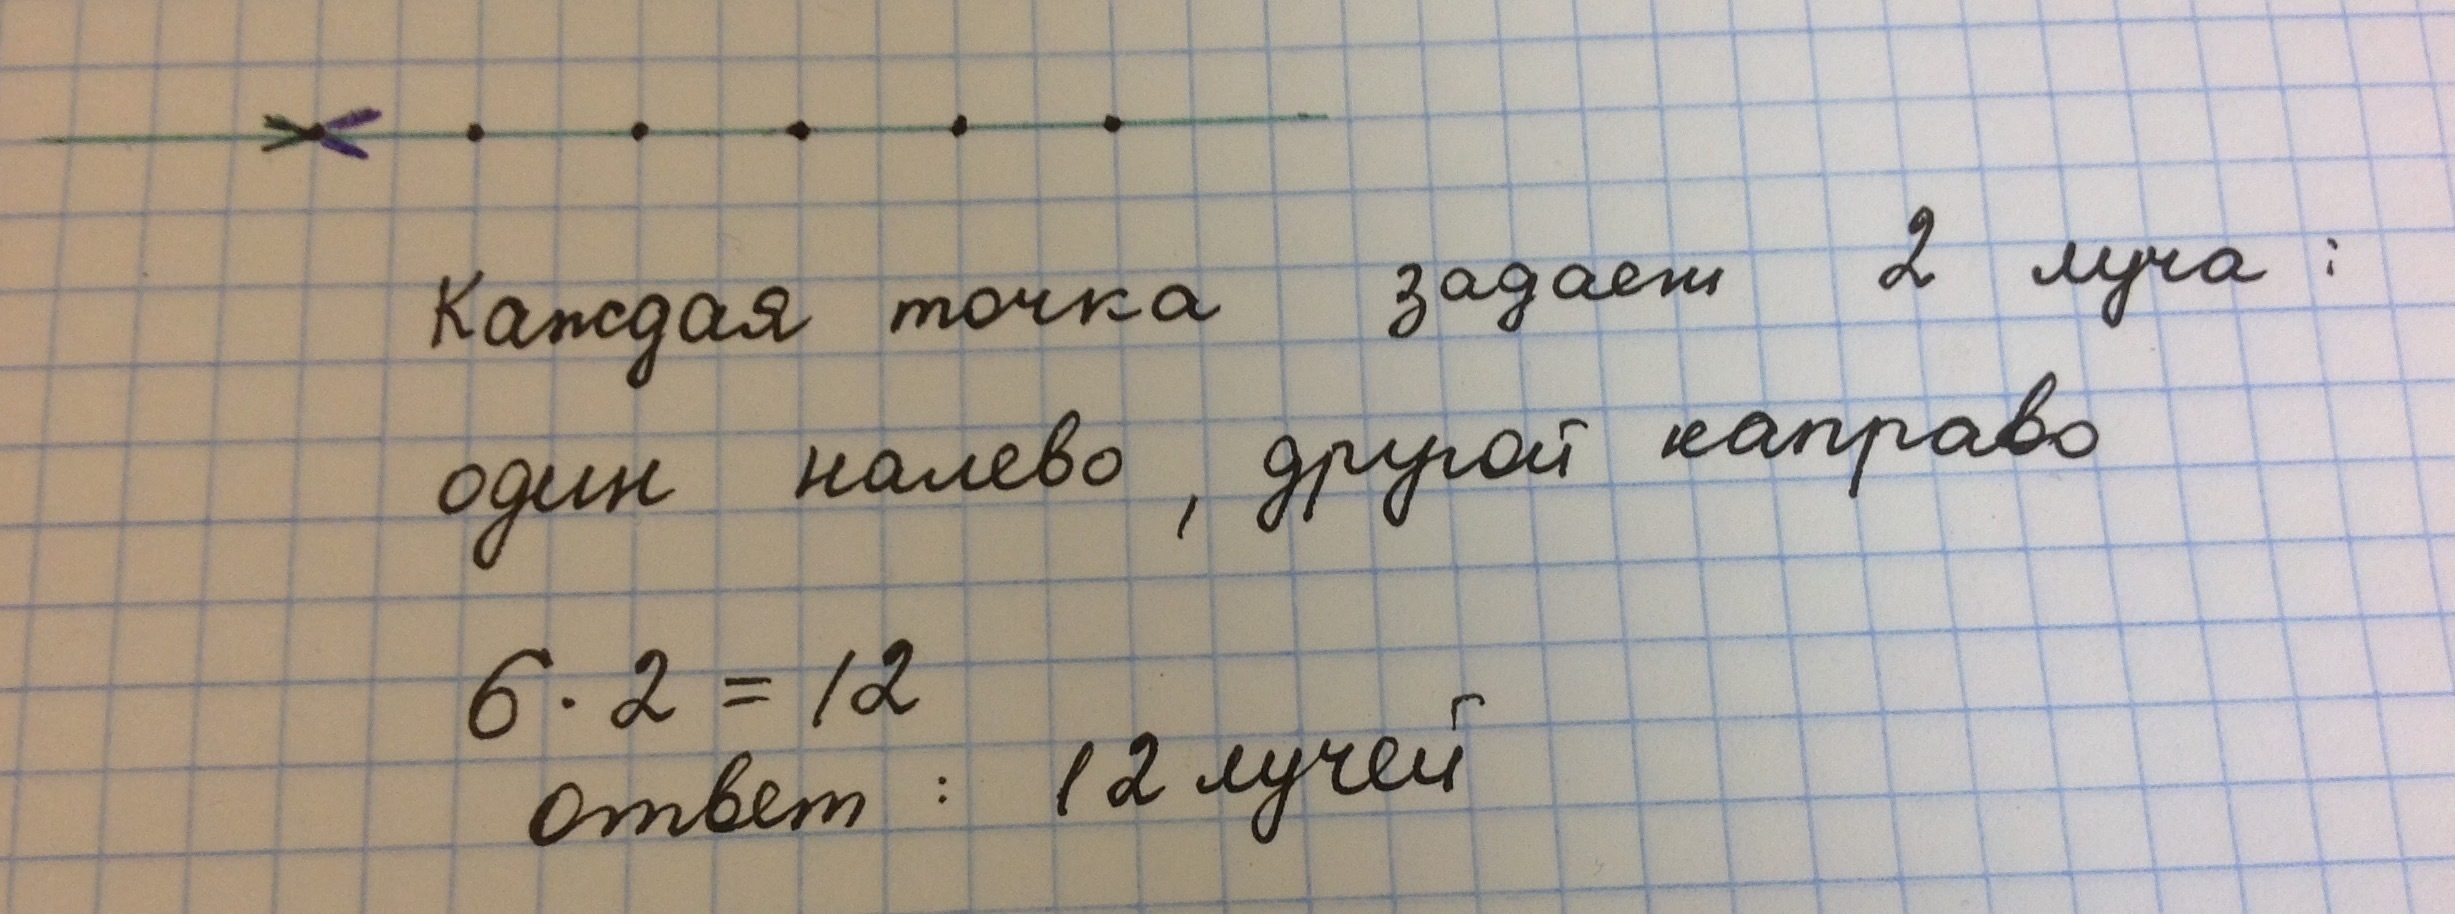 Каждая точка задает 2 луча:
один налево, другой направо
6 · 2 = 12
ответ: 12 лучей